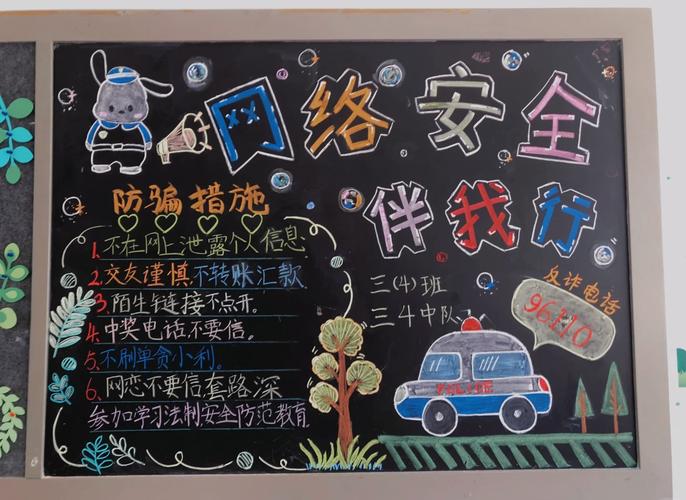 网络安全
伴我行
防骗措施
1.不在网上泄露个人信息
2.交友谨慎不转账汇款
3.陌生链接不点开。
4.中奖电话不要信。
5.不刷单贪小利。
6.网恋不要信套路深
参加学习法制安全防范教育
三(4)班
三4中队
反诈电话
96110
POLICE